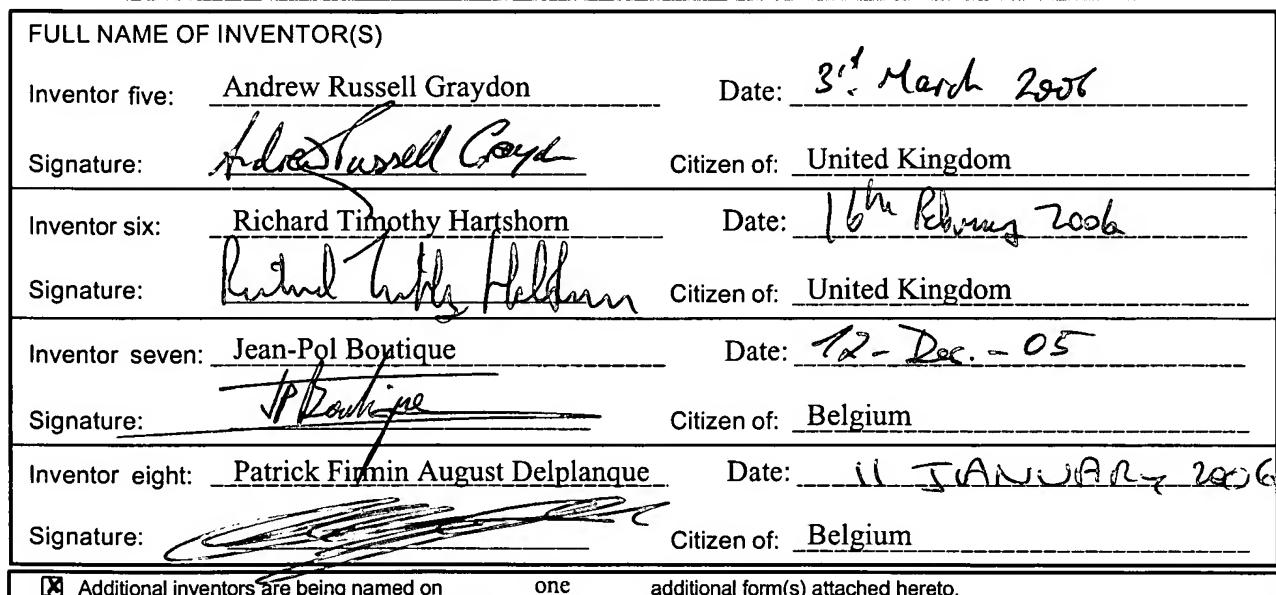 FULL NAME OF INVENTOR(S)
Inventor five: Andrew Russell Graydon Date: 3rd March 2006
Signature: Andrew Russell Graydon Citizen of: United Kingdom
Inventor six: Richard Timothy Hartshorn Date: 16th February 2006
Signature: Richard Timothy Hartshorn Citizen of: United Kingdom
Inventor seven: Jean-Pol Boutique Date: 12-Dec.-05
Signature: JP Boutique Citizen of: Belgium
Inventor eight: Patrick Firmin August Delplanque Date: 11 JANUARY 2006
Signature: Citizen of: Belgium
X Additional inventors are being named on one additional form(s) attached hereto.